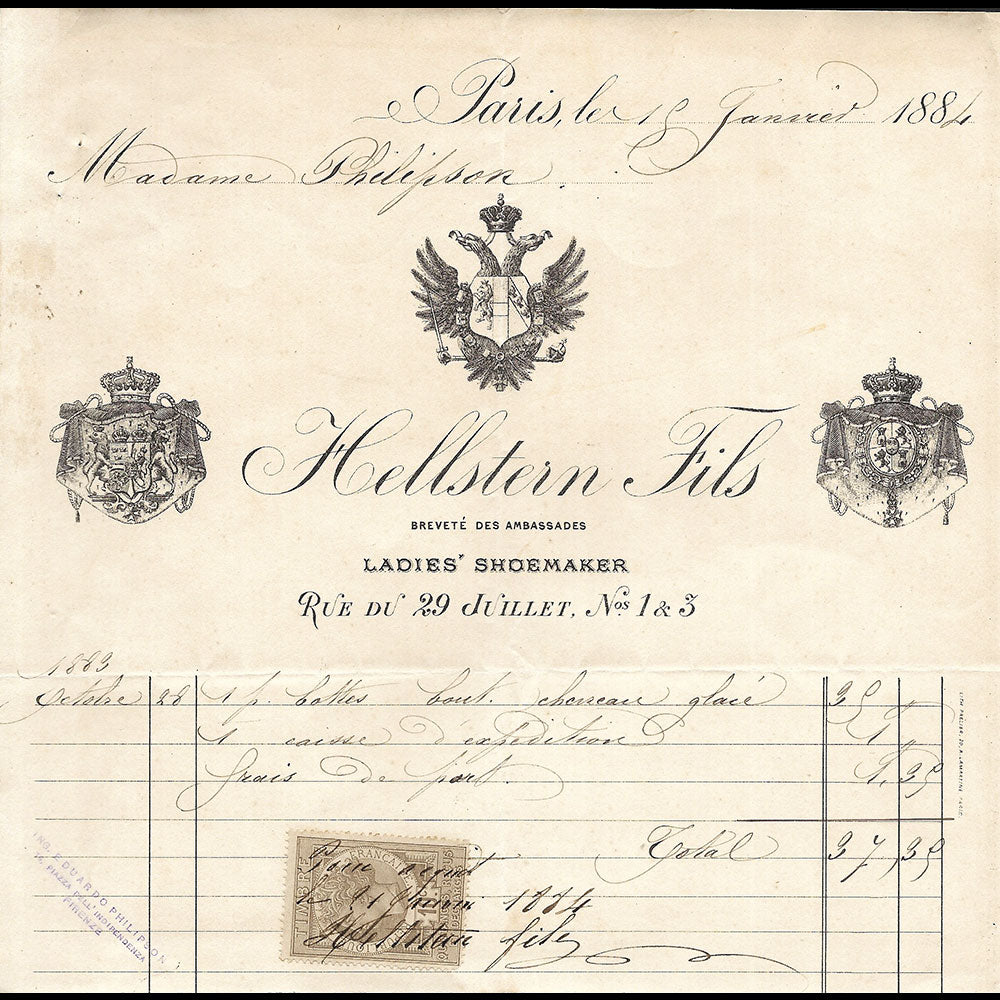 Paris, le 15 Janvier 1884
Madame Philipson.
Hellstern Fils
BREVETÉ DES AMBASSADES
LADIES' SHOEMAKER
RUE DU 29 JUILLET, Nos 1 & 3
1883
Octobre 28 1 p. bottes bout. chevreau glacé 35 "
1 caisse d'expedition 1 "
frais de port. 1,35
Total 37,35
TIMBRE
FRANÇAISE
Pour acquit
le 21 1884
Hellstern fils
ING. EDUARDO PHILIPSON
PIAZZA DELL'INDIPENDENZA
FIRENZE